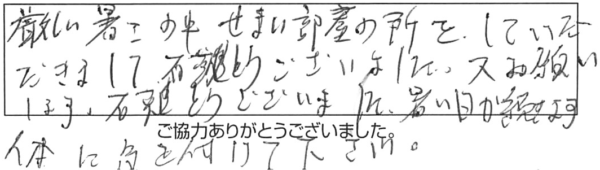 厳しい暑さの中せまい部屋の所を、していた
だきまして有難とうございました。又お願い
します。有難とうございました、暑い日が続きます
ご協力ありがとうございました。
体に気を付けて下さい。